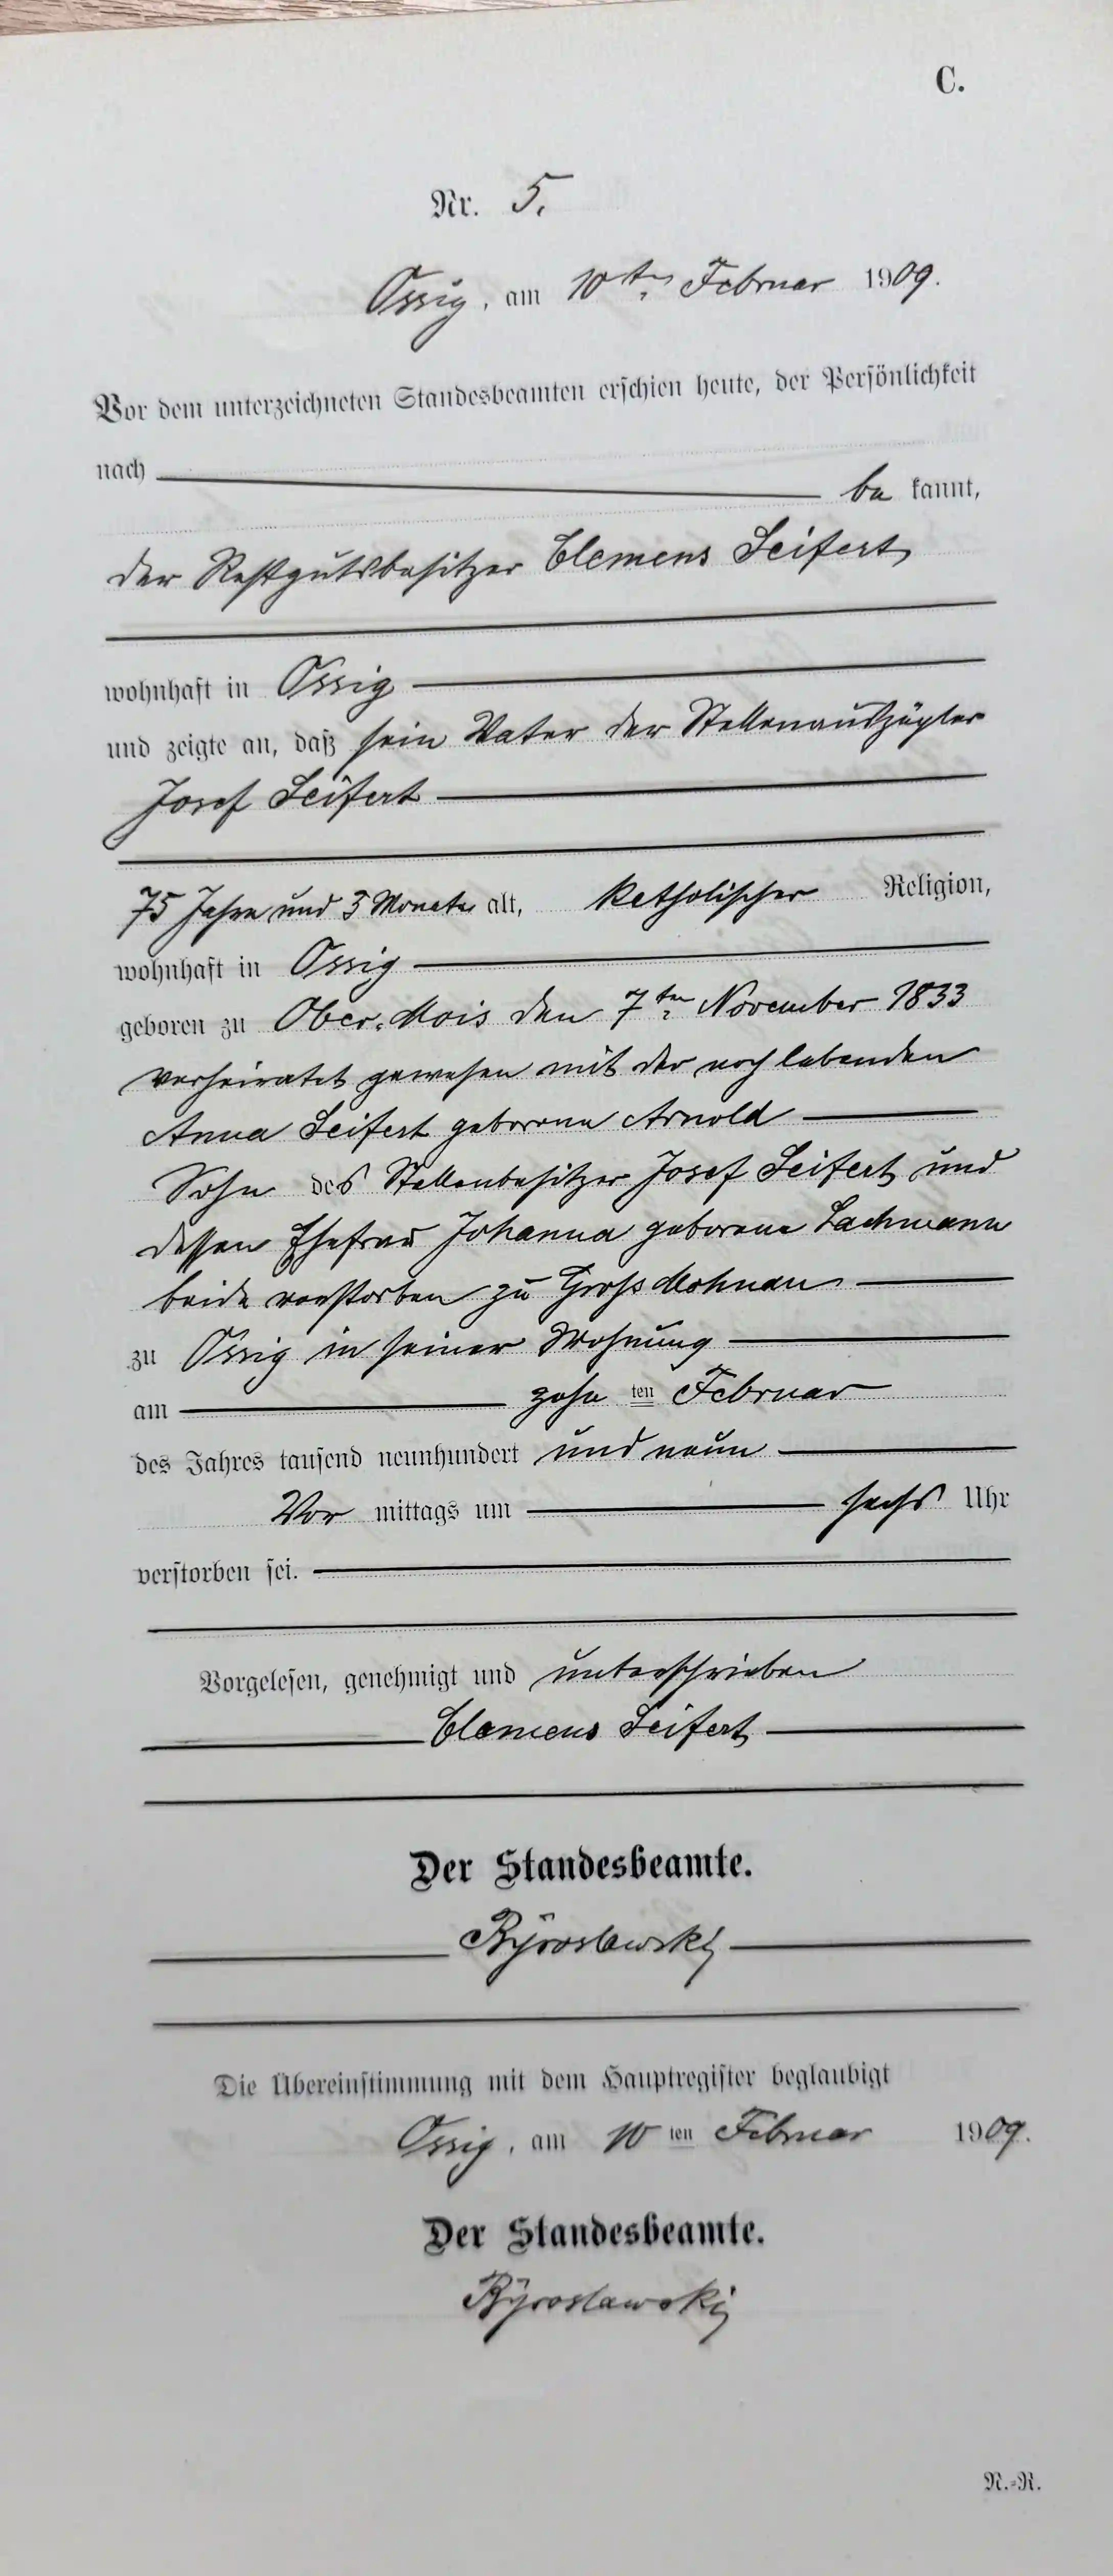 C.
Nr. 5.
Ossig, am 10ten Februar 1909.
Vor dem unterzeichneten Standesbeamten erschien heute, der Persönlichkeit
nach
be kannt,
der Restgutsbesitzer Clemens Seifert
wohnhaft in Ossig
und zeigte an, daß sein Vater der Stellenauszügler
Josef Seifert
75 Jahre und 3 Monate alt, katholischer Religion,
wohnhaft in Ossig
geboren zu Ober-Mois den 7ten November 1833
verheiratet gewesen mit der noch lebenden
Anna Seifert geborene Arnold
Sohn des Stellenbesitzer Josef Seifert und
dessen Ehefrau Johanna geborene Lachmann
beide verstorben zu Groß Mohnau
zu Ossig in seiner Wohnung
am zehn ten Februar
des Jahres tausend neunhundert und neun
Vor mittags um sechs Uhr
verstorben sei.
Vorgelesen, genehmigt und unterschrieben
Clemens Seifert
Der Standesbeamte.
Die Übereinstimmung mit dem Hauptregister beglaubigt
Ossig, am 10 ten Februar 1909.
Der Standesbeamte.
N.-R.